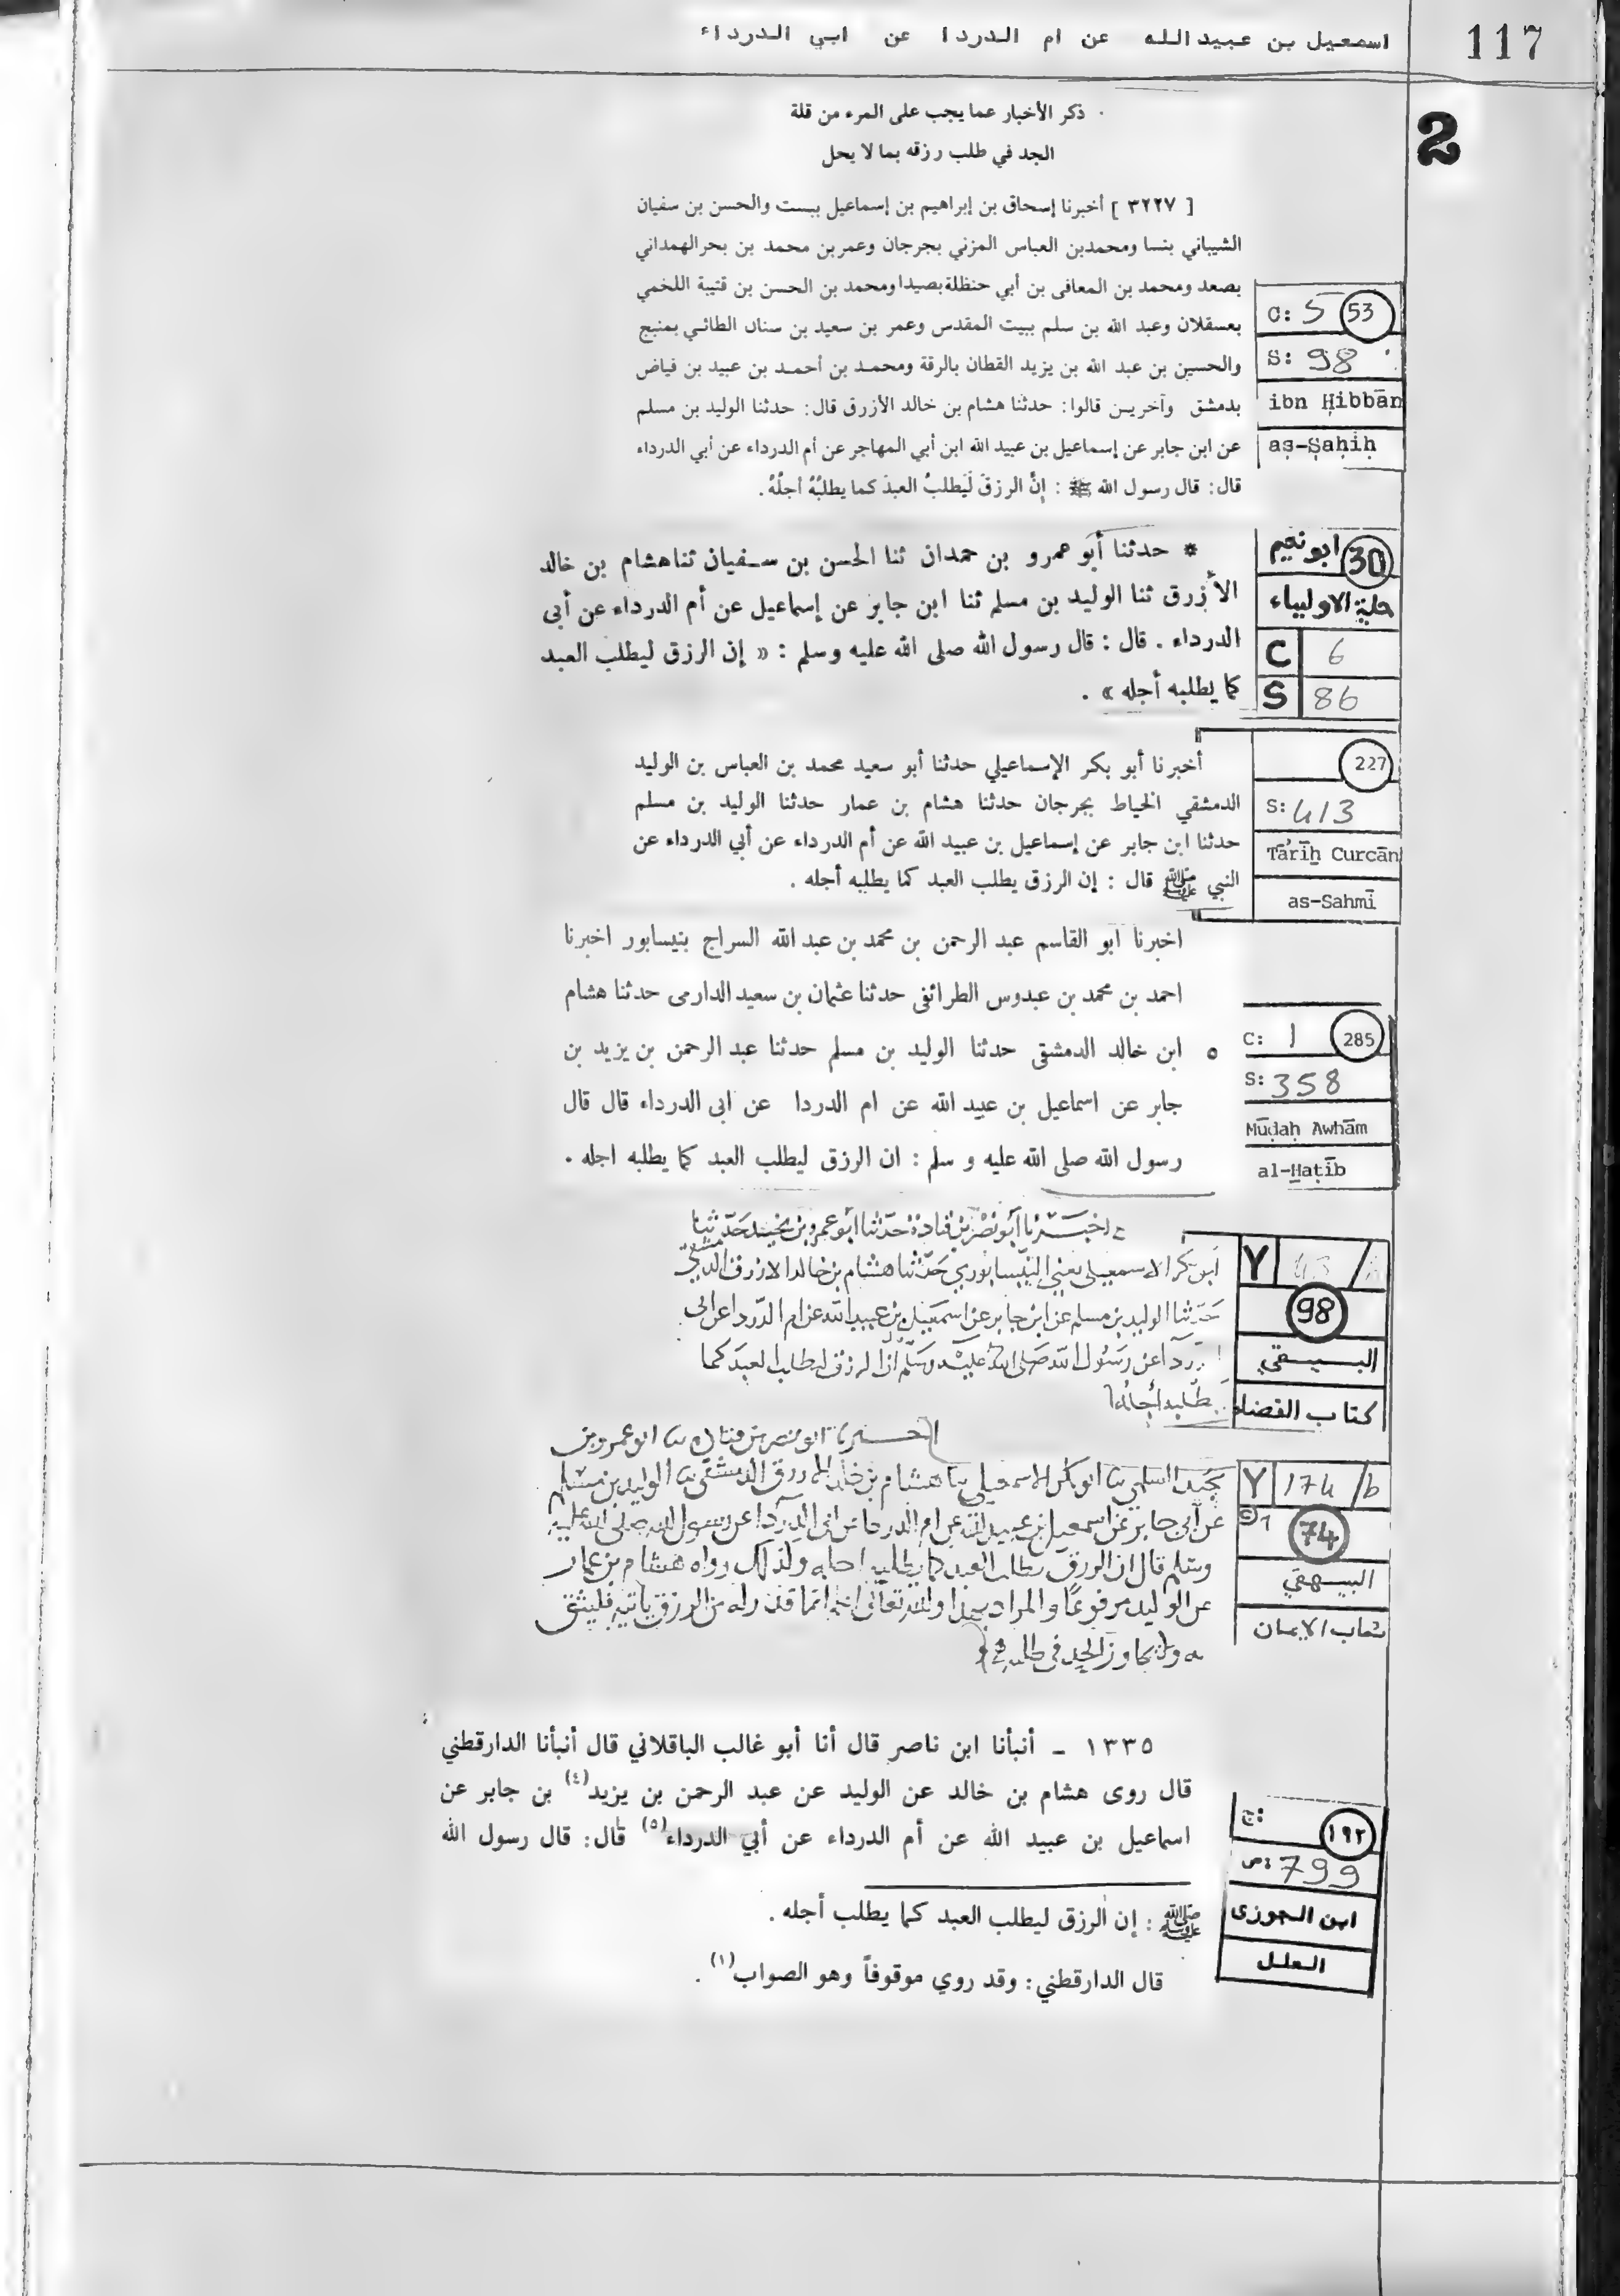 117
اسمعيل بن عبيدالله عن ام الدردا عن ابي الدرداء
2
ذكر الأخبار عما يجب على المرء من قلة
الجد في طلب رزقه بما لا يحل
[ ٣٢٢٧ ] أخبرنا إسحاق بن إبراهيم بن إسماعيل ببست والحسن بن سفيان
الشيباني بنسا ومحمدبن العباس المزني بجرجان وعمربن محمد بن بحرالهمداني
بصعد ومحمد بن المعافى بن أبي حنظلة بصيدا ومحمد بن الحسن بن قتيبة اللخمي
بعسقلان وعبد الله بن سلم ببيت المقدس وعمر بن سعيد بن سنان الطائي بمنبج
والحسين بن عبد الله بن يزيد القطان بالرقة ومحمد بن أحمد بن عبيد بن فياض
بدمشق وآخرين قالوا: حدثنا هشام بن خالد الأزرق قال: حدثنا الوليد بن مسلم
عن ابن جابر عن إسماعيل بن عبيد الله ابن أبي المهاجر عن أم الدرداء عن أبي الدرداء
قال: قال رسول الله ﷺ : إنَّ الرزقَ لَيَطلبُ العبدَ كما يطلبُهُ أجلُهُ.
C: 5 53
S: 98
ibn Ḥibbān
aṣ-Ṣaḥīḥ
* حدثنا أبو عمرو بن حمدان ثنا الحسن بن سفيان ثنا هشام بن خالد
الأزرق ثنا الوليد بن مسلم ثنا ابن جابر عن إسماعيل عن أم الدرداء عن أبى
الدرداء . قال : قال رسول الله صلى الله عليه وسلم : « إن الرزق ليطلب العبد
كما يطلبه أجله » .
ابونعيم 30
حلية الاولياء
C 6
S 86
أخبرنا أبو بكر الإسماعيلي حدثنا أبو سعيد محمد بن العباس بن الوليد
الدمشقي الخياط بجرجان حدثنا هشام بن عمار حدثنا الوليد بن مسلم
حدثنا ابن جابر عن إسماعيل بن عبيد الله عن أم الدرداء عن أبي الدرداء عن
النبي ﷺ قال : إن الرزق يطلب العبد كما يطلبه أجله .
227
S: 413
Tāʾrīḫ Curcān
as-Sahmī
اخبرنا ابو القاسم عبد الرحمن بن محمد بن عبد الله السراج بنيسابور اخبرنا
احمد بن محمد بن عبدوس الطرائفى حدثنا عثمان بن سعيد الدارمى حدثنا هشام
٥ ابن خالد الدمشقى حدثنا الوليد بن مسلم حدثنا عبد الرحمن بن يزيد بن
جابر عن اسماعيل بن عبيد الله عن ام الدردا عن ابى الدرداء قال قال
رسول الله صلى الله عليه و سلم : ان الرزق ليطلب العبد كما يطلبه اجله .
C: 1 285
S: 358
Mūḍaḥ Awhām
al-Ḫaṭīb
اخبرنا أبو نصر بن قتادة حدثنا أبو عمرو بن نجيد حدثنا
أبو بكر الاسمعيلي يعني النيسابوري حدثنا هشام بن خالد الازرق الدمشقي
حدثنا الوليد بن مسلم عن ابن جابر عن اسمعيل بن عبيد الله عن ام الدرداء عن ابى
عن رسول الله صلى الله عليه وسلم ان الرزق ليطلب العبد كما
يطلبه أجله
Y
98
البيهقي
كتاب القضاء
اخبرنا ابو نصر بن قتادة ثنا ابو عمرو بن
نجيد السلمي ثنا ابو بكر الاسمعيلي ثنا هشام بن خالد الازرق الدمشقي ثنا الوليد بن مسلم
عن ابن جابر عن اسمعيل بن عبيد الله عن ام الدرداء عن ابى الدرداء عن رسول الله صلى الله عليه
وسلم قال ان الرزق يطلب العبد كما يطلبه اجله وكذلك رواه هشام بن عمار
عن الوليد مرفوعًا والمراد بهذا والله تعالى اعلم انما قدر له من الرزق ياتيه فليثق
به ولا يجاوز الحد في طلبه
Y 174/b
C 1 74
البيهقي
شعاب الايمان
١٣٣٥ - أنبأنا ابن ناصر قال أنا أبو غالب الباقلاني قال أنبأنا الدارقطني
قال روى هشام بن خالد عن الوليد عن عبد الرحمن بن يزيد(٤) بن جابر عن
اسماعيل بن عبيد الله عن أم الدرداء عن أبي الدرداء(٥) قال: قال رسول الله
ﷺ : إن الرزق ليطلب العبد كما يطلب أجله .
قال الدارقطني: وقد روي موقوفاً وهو الصواب(١) .
ج: ١٩٢
ص: 799
ابن الجوزى
العلل